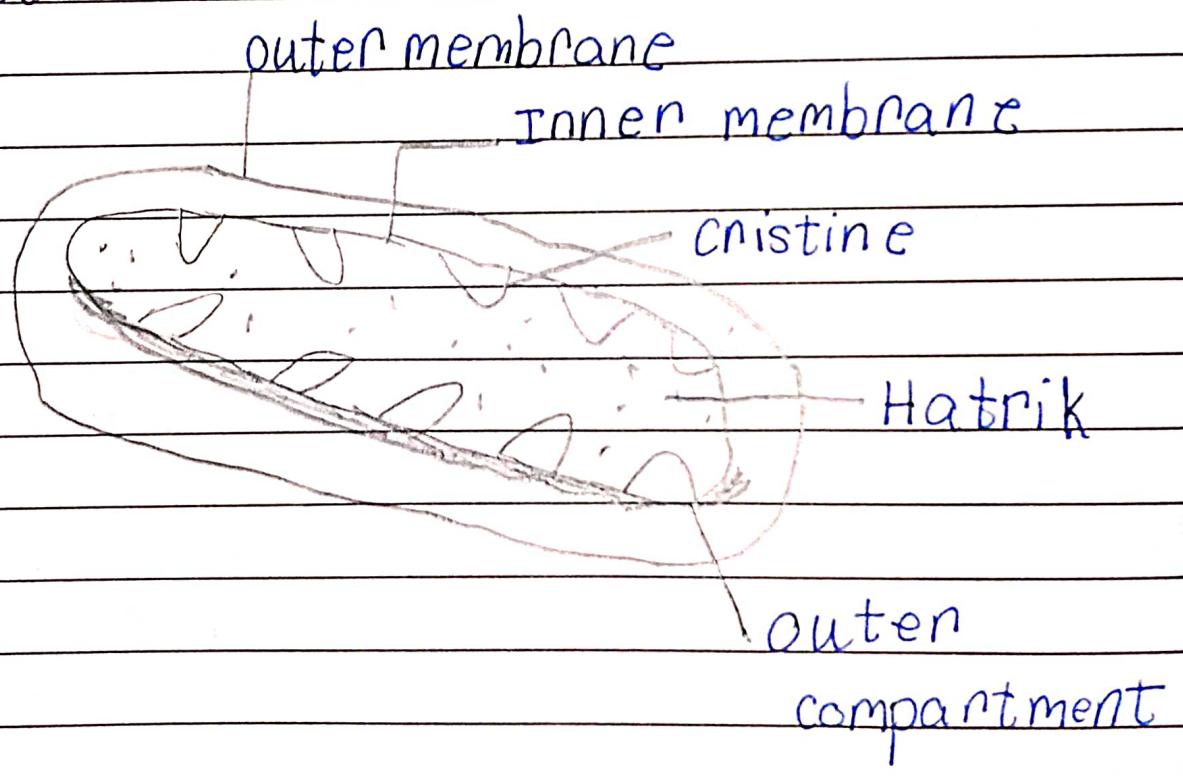 outer membrane
Inner membrane
Cristine
Hatrik
Outer
compartment